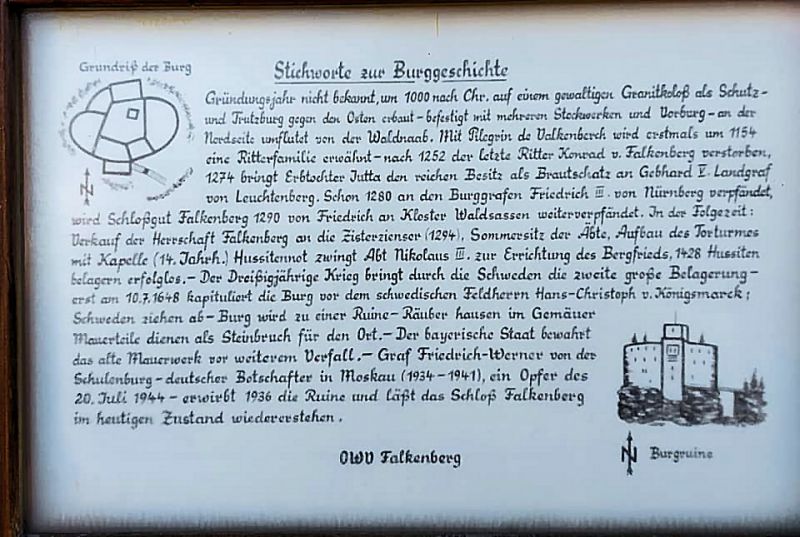 Grundriß der Burg
Stichworte zur Burggeschichte
Gründungsjahr nicht bekannt, um 1000 nach Chr. auf einem gewaltigen Granitkoloß als Schutz-
und Trutzburg gegen den Osten erbaut – befestigt mit mehreren Stockwerken und Vorburg – an der
Nordseite umflutet von der Waldnaab. Mit Pilegrin de Valkenberch wird erstmals um 1154
eine Ritterfamilie erwähnt – nach 1252 der letzte Ritter Konrad v. Falkenberg verstorben,
1274 bringt Erbtochter Jutta den reichen Besitz als Brautschatz an Gebhard V. Landgraf
von Leuchtenberg. Schon 1280 an den Burggrafen Friedrich III. von Nürnberg verpfändet,
wird Schloßgut Falkenberg 1290 von Friedrich an Kloster Waldsassen weiterverpfändet. In der Folgezeit:
Verkauf der Herrschaft Falkenberg an die Zisterzienser (1294), Sommersitz der Äbte, Aufbau des Torturmes
mit Kapelle (14. Jahrh.) Hussitennot zwingt Abt Nikolaus III. zur Errichtung des Bergfrieds, 1428 Hussiten
belagern erfolglos. – Der Dreißigjährige Krieg bringt durch die Schweden die zweite große Belagerung –
erst am 10.7.1648 kapituliert die Burg vor dem schwedischen Feldherrn Hans-Christoph v. Königsmarck;
Schweden ziehen ab – Burg wird zu einer Ruine – Räuber hausen im Gemäuer
Mauerteile dienen als Steinbruch für den Ort. – Der bayerische Staat bewahrt
das alte Mauerwerk vor weiterem Verfall. – Graf Friedrich-Werner von der
Schulenburg – deutscher Botschafter in Moskau (1934 – 1941), ein Opfer des
20. Juli 1944 – erwirbt 1936 die Ruine und läßt das Schloß Falkenberg
im heutigen Zustand wiedererstehen.
N
Burgruine
OWV Falkenberg